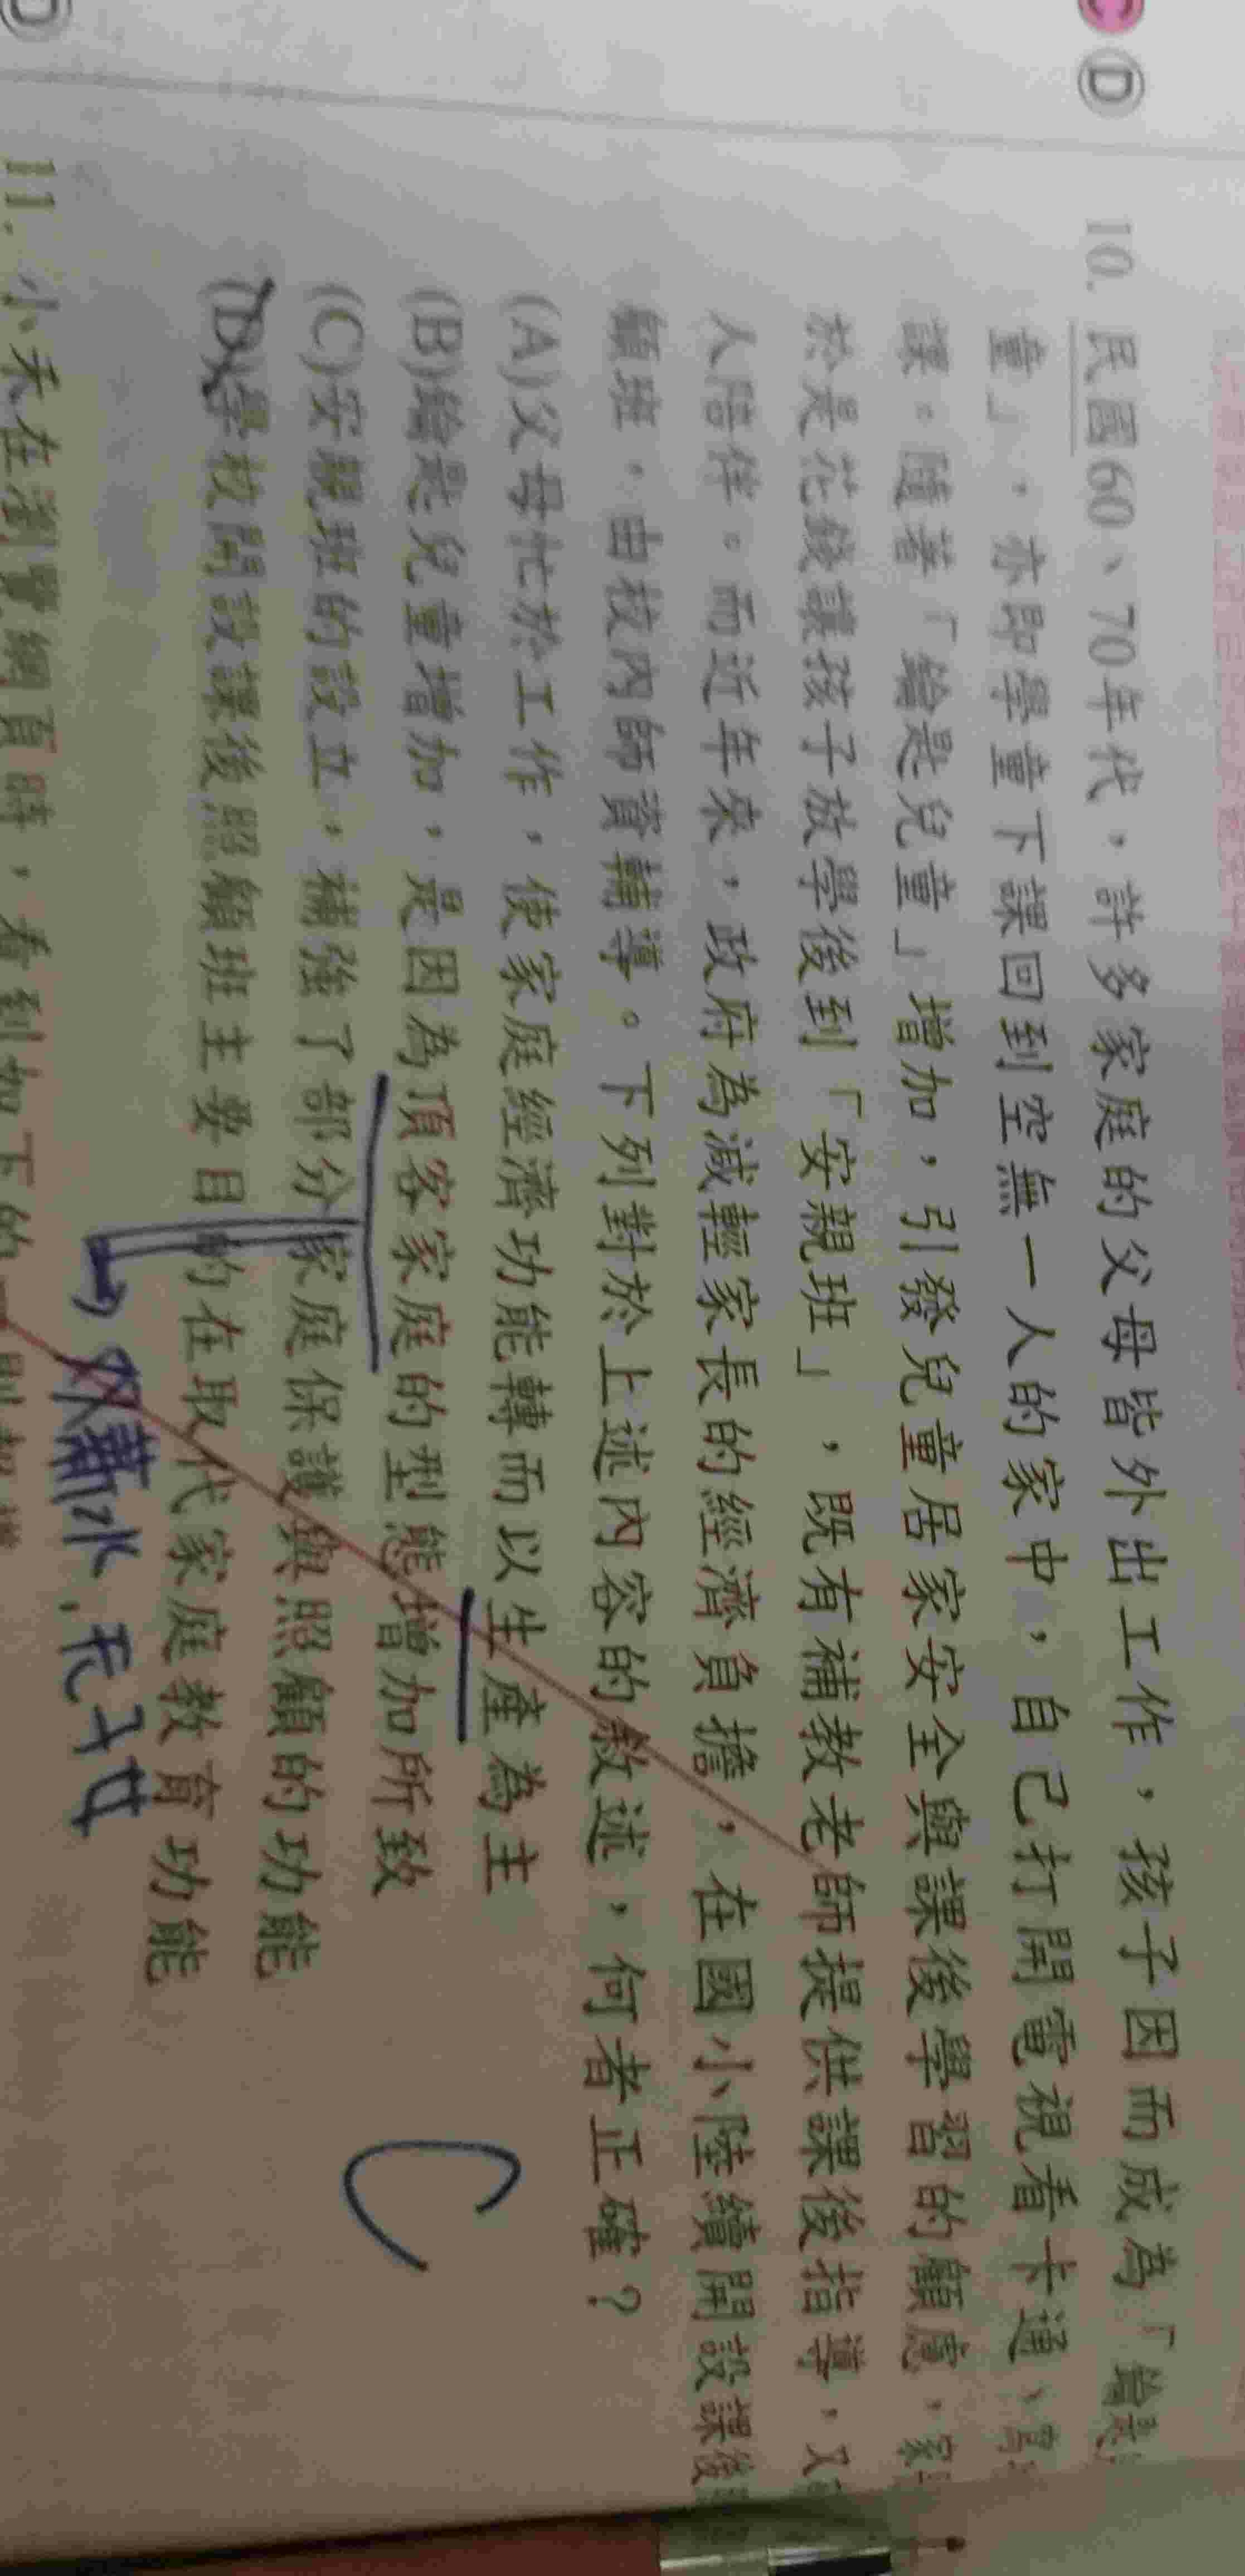 D
C D
10. 民國60、70年代，許多家庭的父母皆外出工作，孩子因而成為「鑰匙
童」，亦即學童下課回到空無一人的家中，自己打開電視看卡通、寫
課。隨著「鑰匙兒童」增加，引發兒童居家安全與課後學習的顧慮，家
於是花錢讓孩子放學後到「安親班」，既有補教老師提供課後指導，又
人陪伴。而近年來，政府為減輕家長的經濟負擔，在國小陸續開設課後
顧班，由校內師資輔導。下列對於上述內容的敘述，何者正確？
(A)父母忙於工作，使家庭經濟功能轉而以生產為主
(B)鑰匙兒童增加，是因為頂客家庭的型態增加所致
(C)安親班的設立，補強了部分家庭保護與照顧的功能
(D)學校開設課後照顧班主要目的在取代家庭教育功能
C
双薪水，无子女
11. 小禾在瀏覽網頁時，看到如下的一則